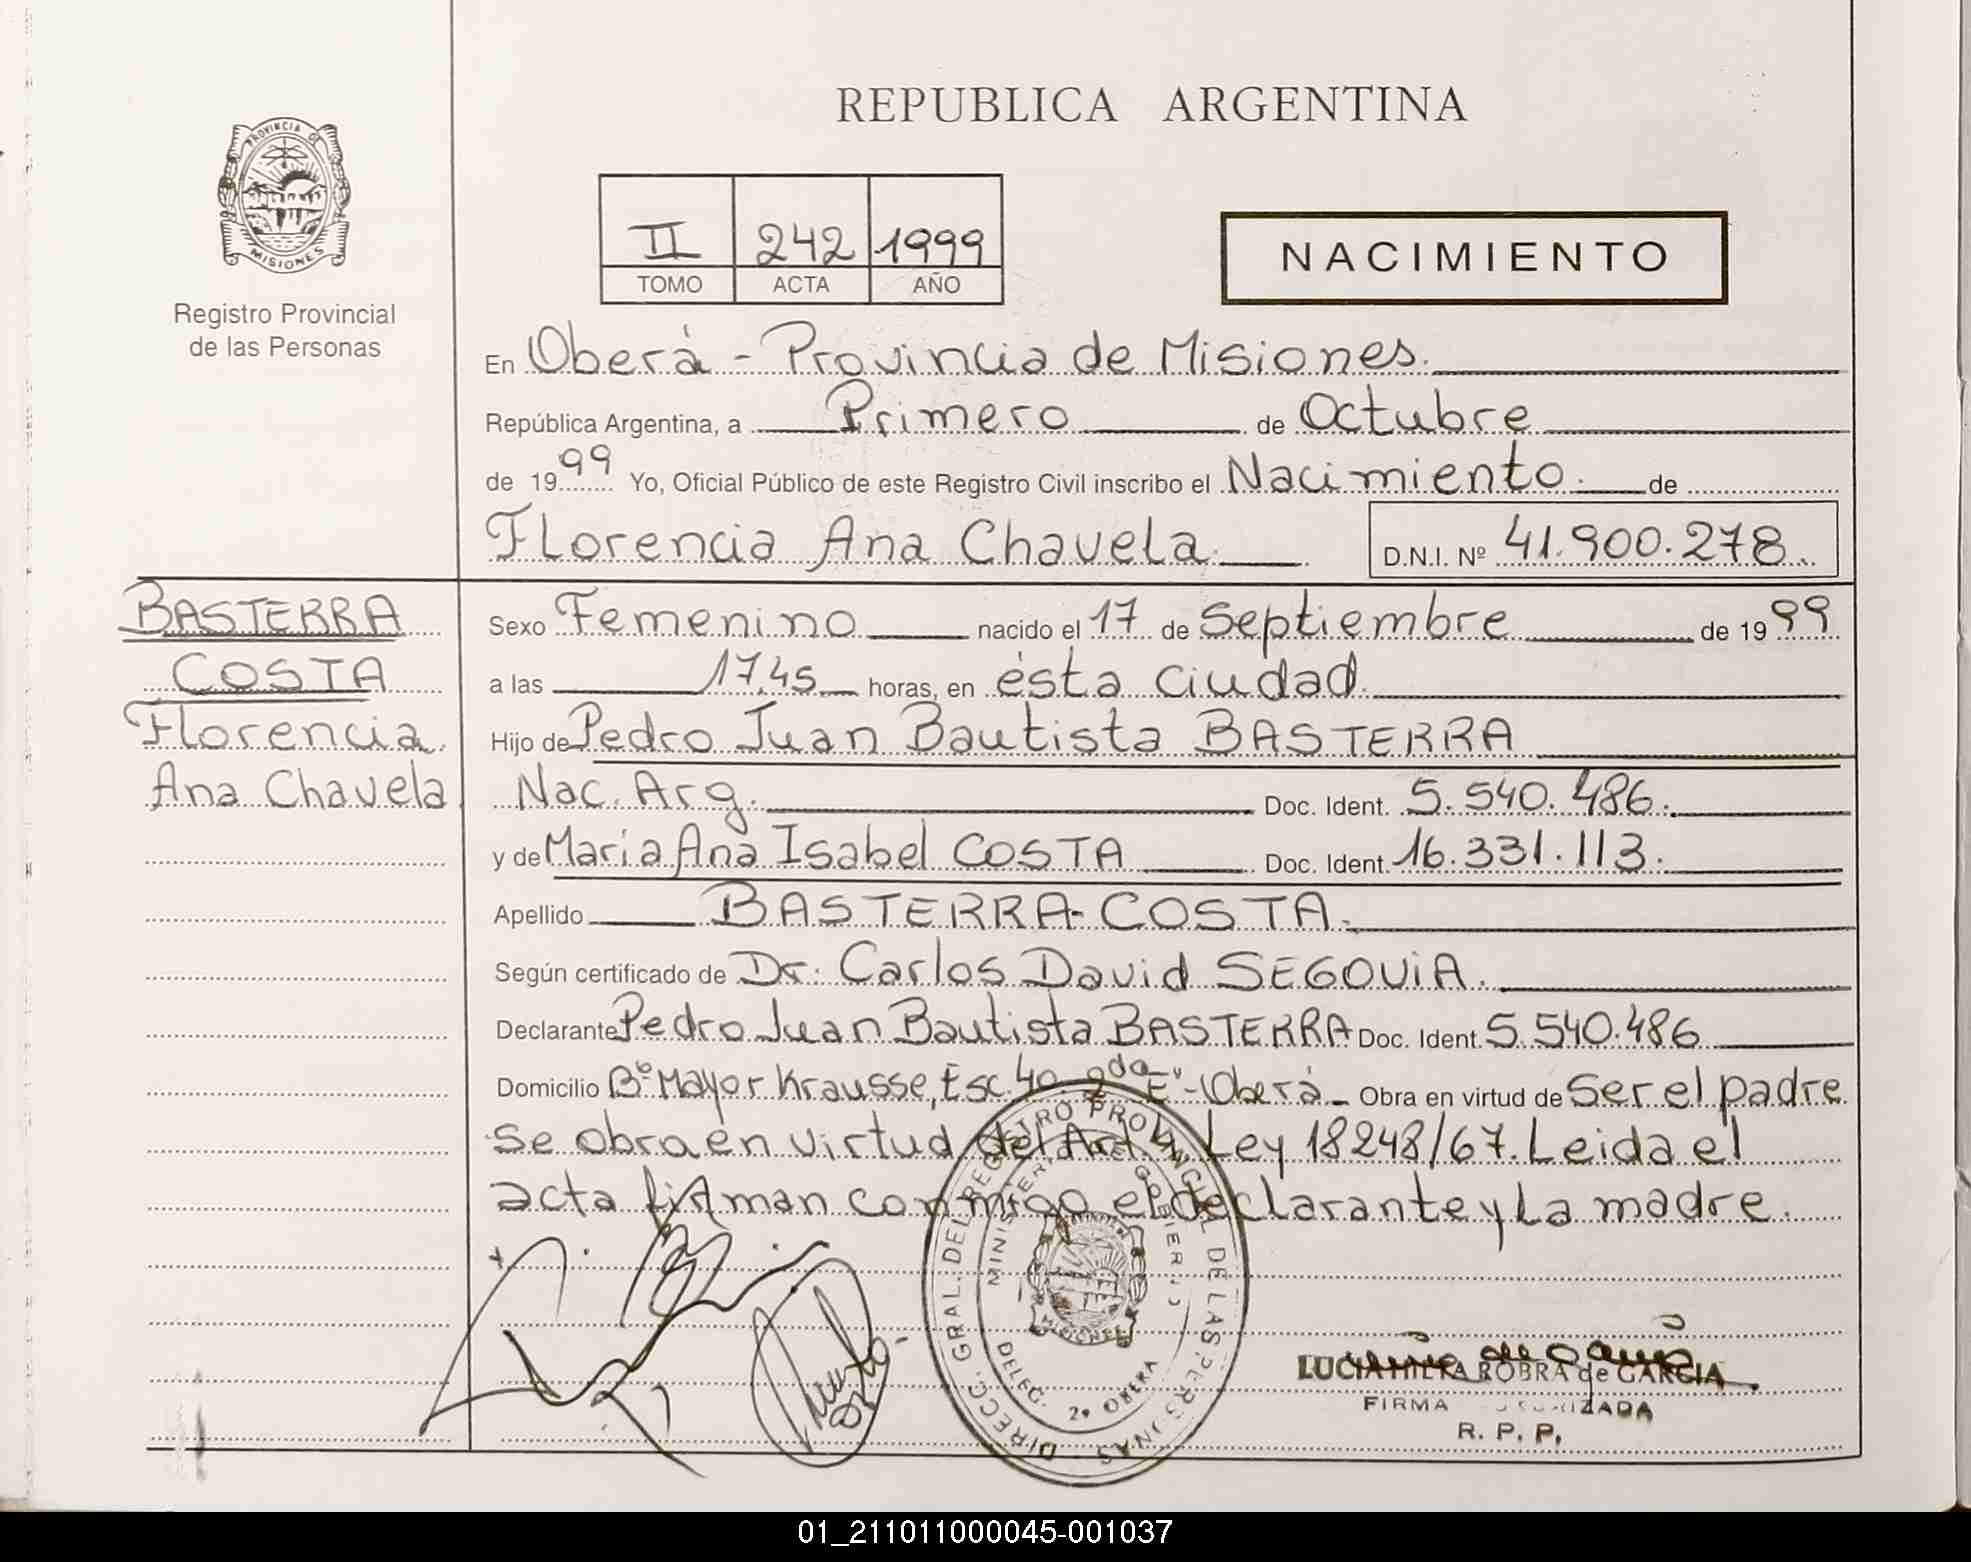 REPUBLICA ARGENTINA
PROVINCIA DE
MISIONES
Registro Provincial
de las Personas
II 242 1999
TOMO ACTA AÑO
NACIMIENTO
En Oberá - Provincia de Misiones.
República Argentina, a Primero de Octubre
de 1999 Yo, Oficial Público de este Registro Civil inscribo el Nacimiento. de
Florencia Ana Chavela. D.N.I. Nº 41.900.278.
BASTERRA
COSTA
Florencia
Ana Chavela
Sexo Femenino nacido el 17 de Septiembre de 1999
a las 17,45 horas, en ésta ciudad.
Hijo de Pedro Juan Bautista BASTERRA
Nac. Arg. Doc. Ident. 5.540.486.
y de Maria Ana Isabel COSTA Doc. Ident. 16.331.113.
Apellido BASTERRA-COSTA.
Según certificado de Dr. Carlos David SEGOVIA.
Declarante Pedro Juan Bautista BASTERRA Doc. Ident. 5.540.486
Domicilio Bº Mayor Krausse, Esc. 40 2da E'-Oberá Obra en virtud de Ser el padre
se obra en virtud del Art. 4, Ley 18248/67. Leida el
acta firman conmigo el declarante y La madre.
DIRECC. GRAL. DEL REGISTRO PROVINCIAL DE LAS PERSONAS
MINISTERIO DE GOBIERNO
MISIONES
DELEG. 2ª OBERA
LUCIA HILKA ROBRA de GARCIA
FIRMA AUTORIZADA
R. P. P.
01_211011000045-001037